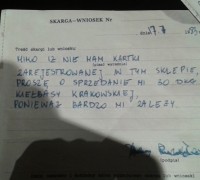 SKARGA-WNIOSEK Nr
dnia 17.7
Treść skargi lub wniosku
MIMO IŻ NIE MAM KARTY
ZAREJESTROWANEJ W TYM SKLEPIE,
PROSZĘ O SPRZEDANIE MI 30 DKG
KIEŁBASY KRAKOWSKIEJ,
PONIEWAŻ BARDZO MI ZALEŻY.
(podpis)